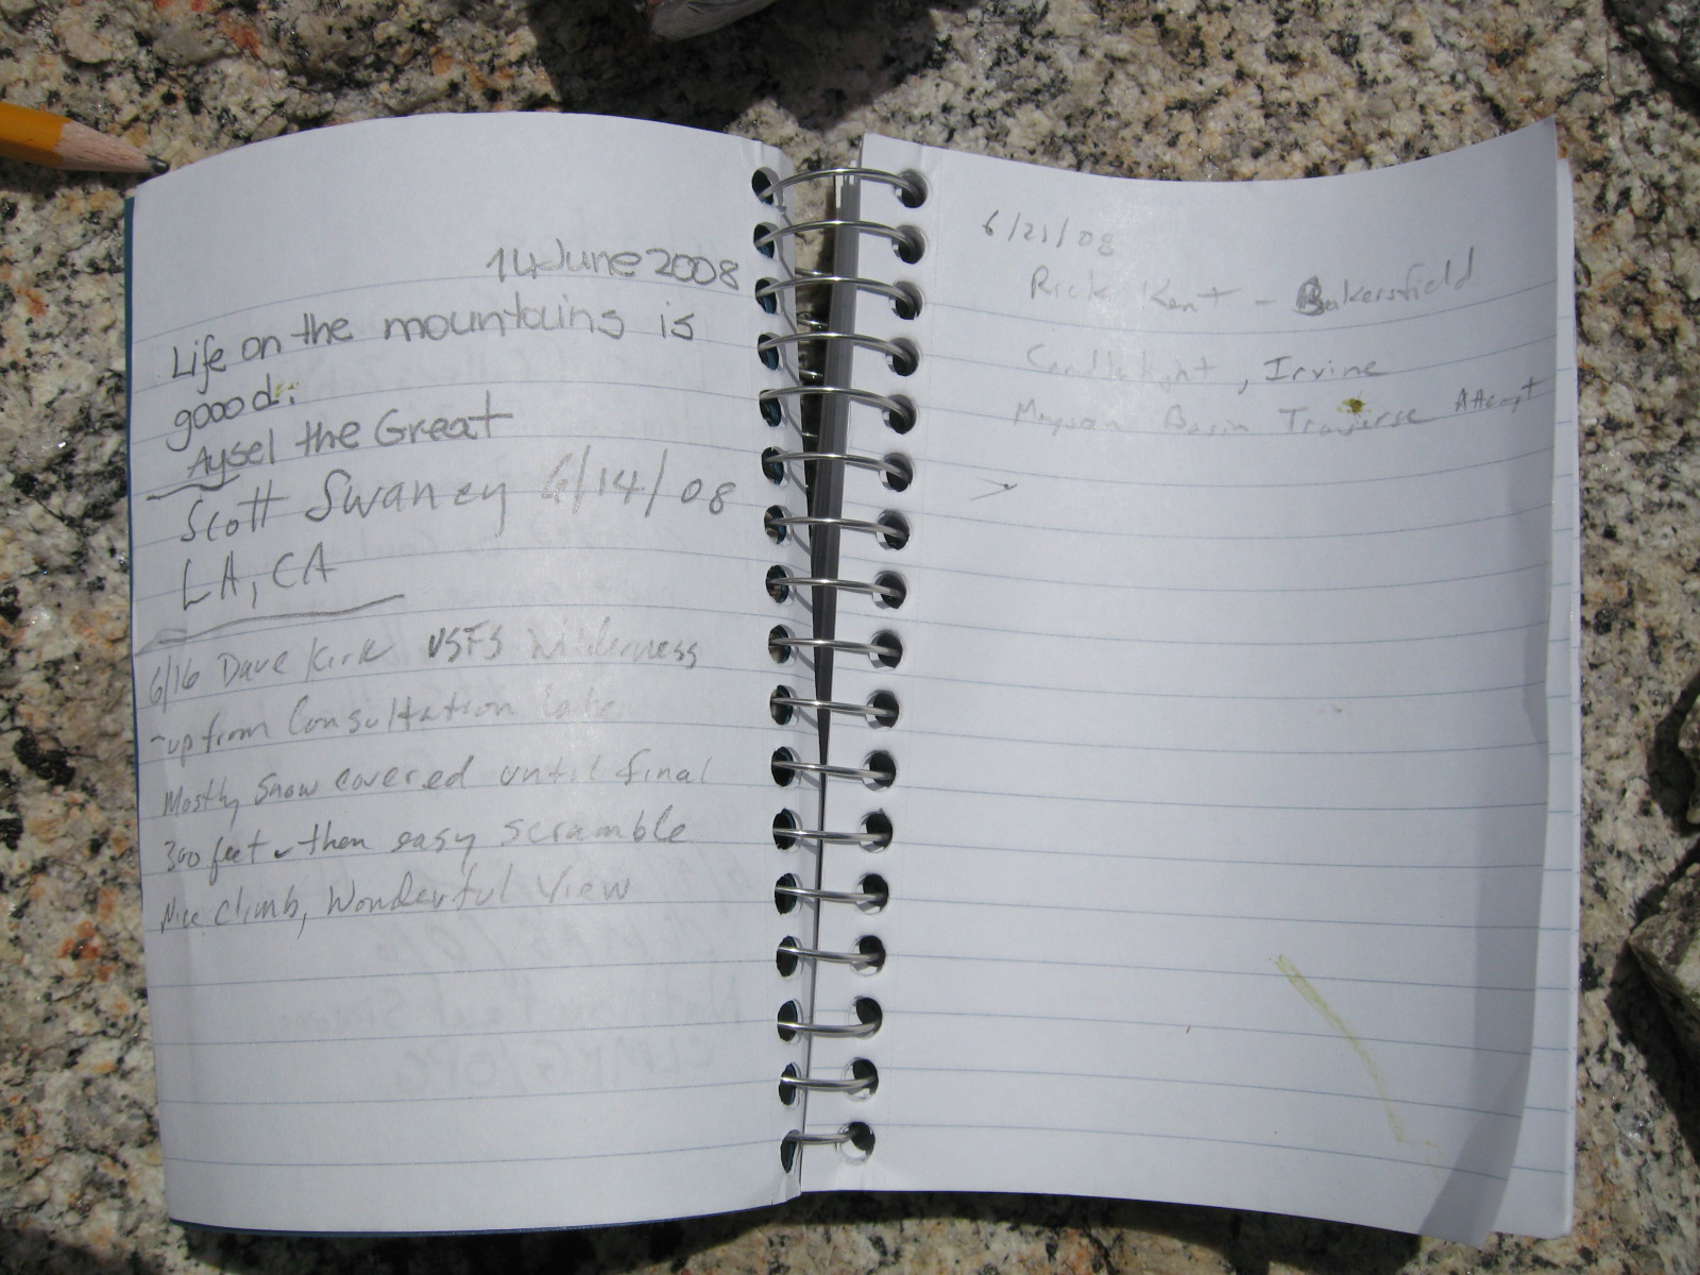 14 June 2008
Life on the mountains is
goood:
Aysel the Great
Scott Swaney 6/14/08
LA, CA
6/16 Dave Kirk USFS Wilderness
-up from Consultation Lake
Mostly Snow covered until final
300 feet - then easy scramble
Nice climb, Wonderful View
6/21/08
Rick Kent - Bakersfield
Candlelight, Irvine
Meysan Basin Traverse AAempt